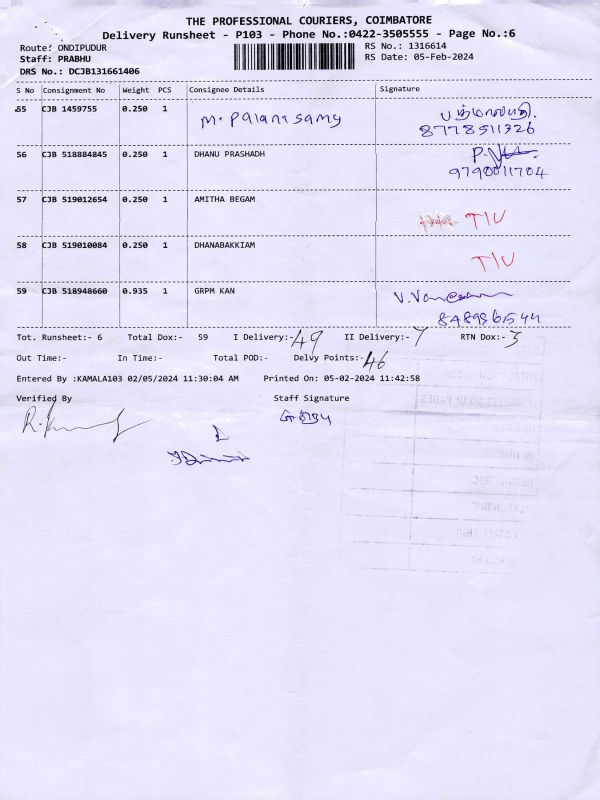 THE PROFESSIONAL COURIERS, COIMBATORE
Delivery Runsheet - P103 - Phone No.:0422-3505555 - Page No.:6
Route: ONDIPUDUR RS No.: 1316614
Staff: PRABHU RS Date: 05-Feb-2024
DRS No.: DCJB131661406
S No Consignment No Weight PCS Consignee Details Signature
55 CJB 1459755 0.250 1 M. Palanisamy
8778511326
56 CJB 518884845 0.250 1 DHANU PRASHADH
9790011704
57 CJB 519012654 0.250 1 AMITHA BEGAM T/U
58 CJB 519010084 0.250 1 DHANABAKKIAM T/U
59 CJB 518948660 0.935 1 GRPM KAN
Tot. Runsheet:- 6 Total Dox:- 59 I Delivery:- 49 II Delivery:- 7 RTN Dox:- 3
Out Time:- In Time:- Total POD:- Delvy Points:- 46
Entered By :KAMALA103 02/05/2024 11:30:04 AM Printed On: 05-02-2024 11:42:58
Verified By Staff Signature